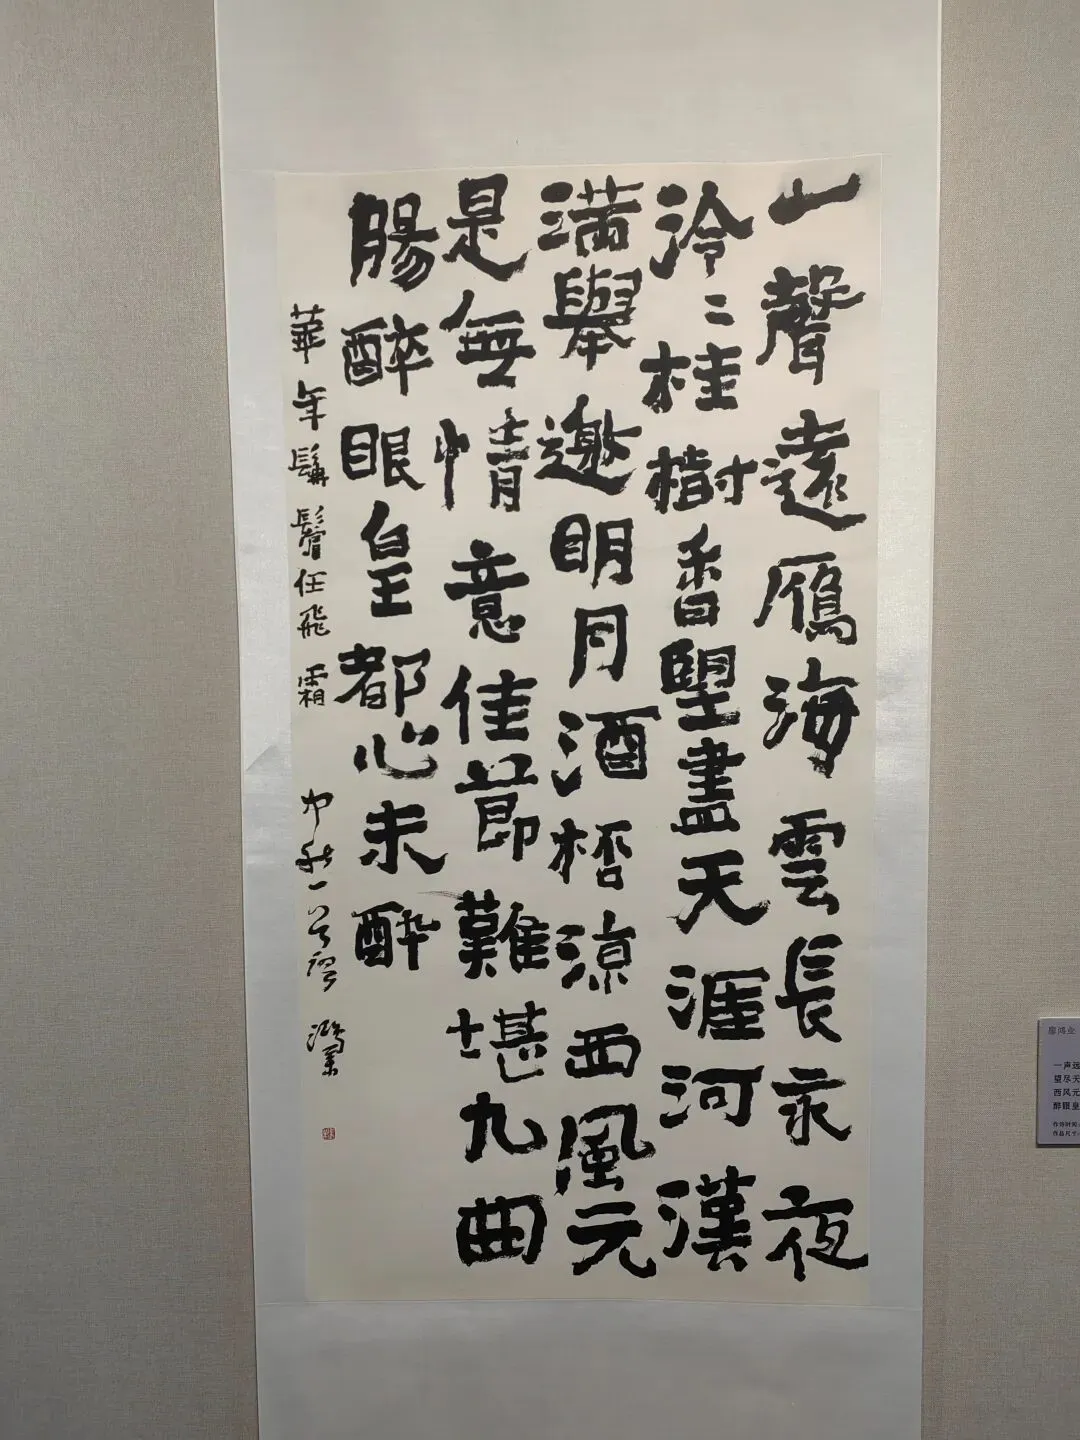 一聲遠鴈海雲長永夜
泠二桂樹香望盡天涯河漢
满舉邀明月酒桮凉西風元
是無情意佳節難堪九曲
腸醉眼皇都心未酔
華年鬢任飛霜 中秋一首廖鴻業
廖鸿业
一声远
望尽天
西风元
醉眼皇
作诗时间
作品尺寸